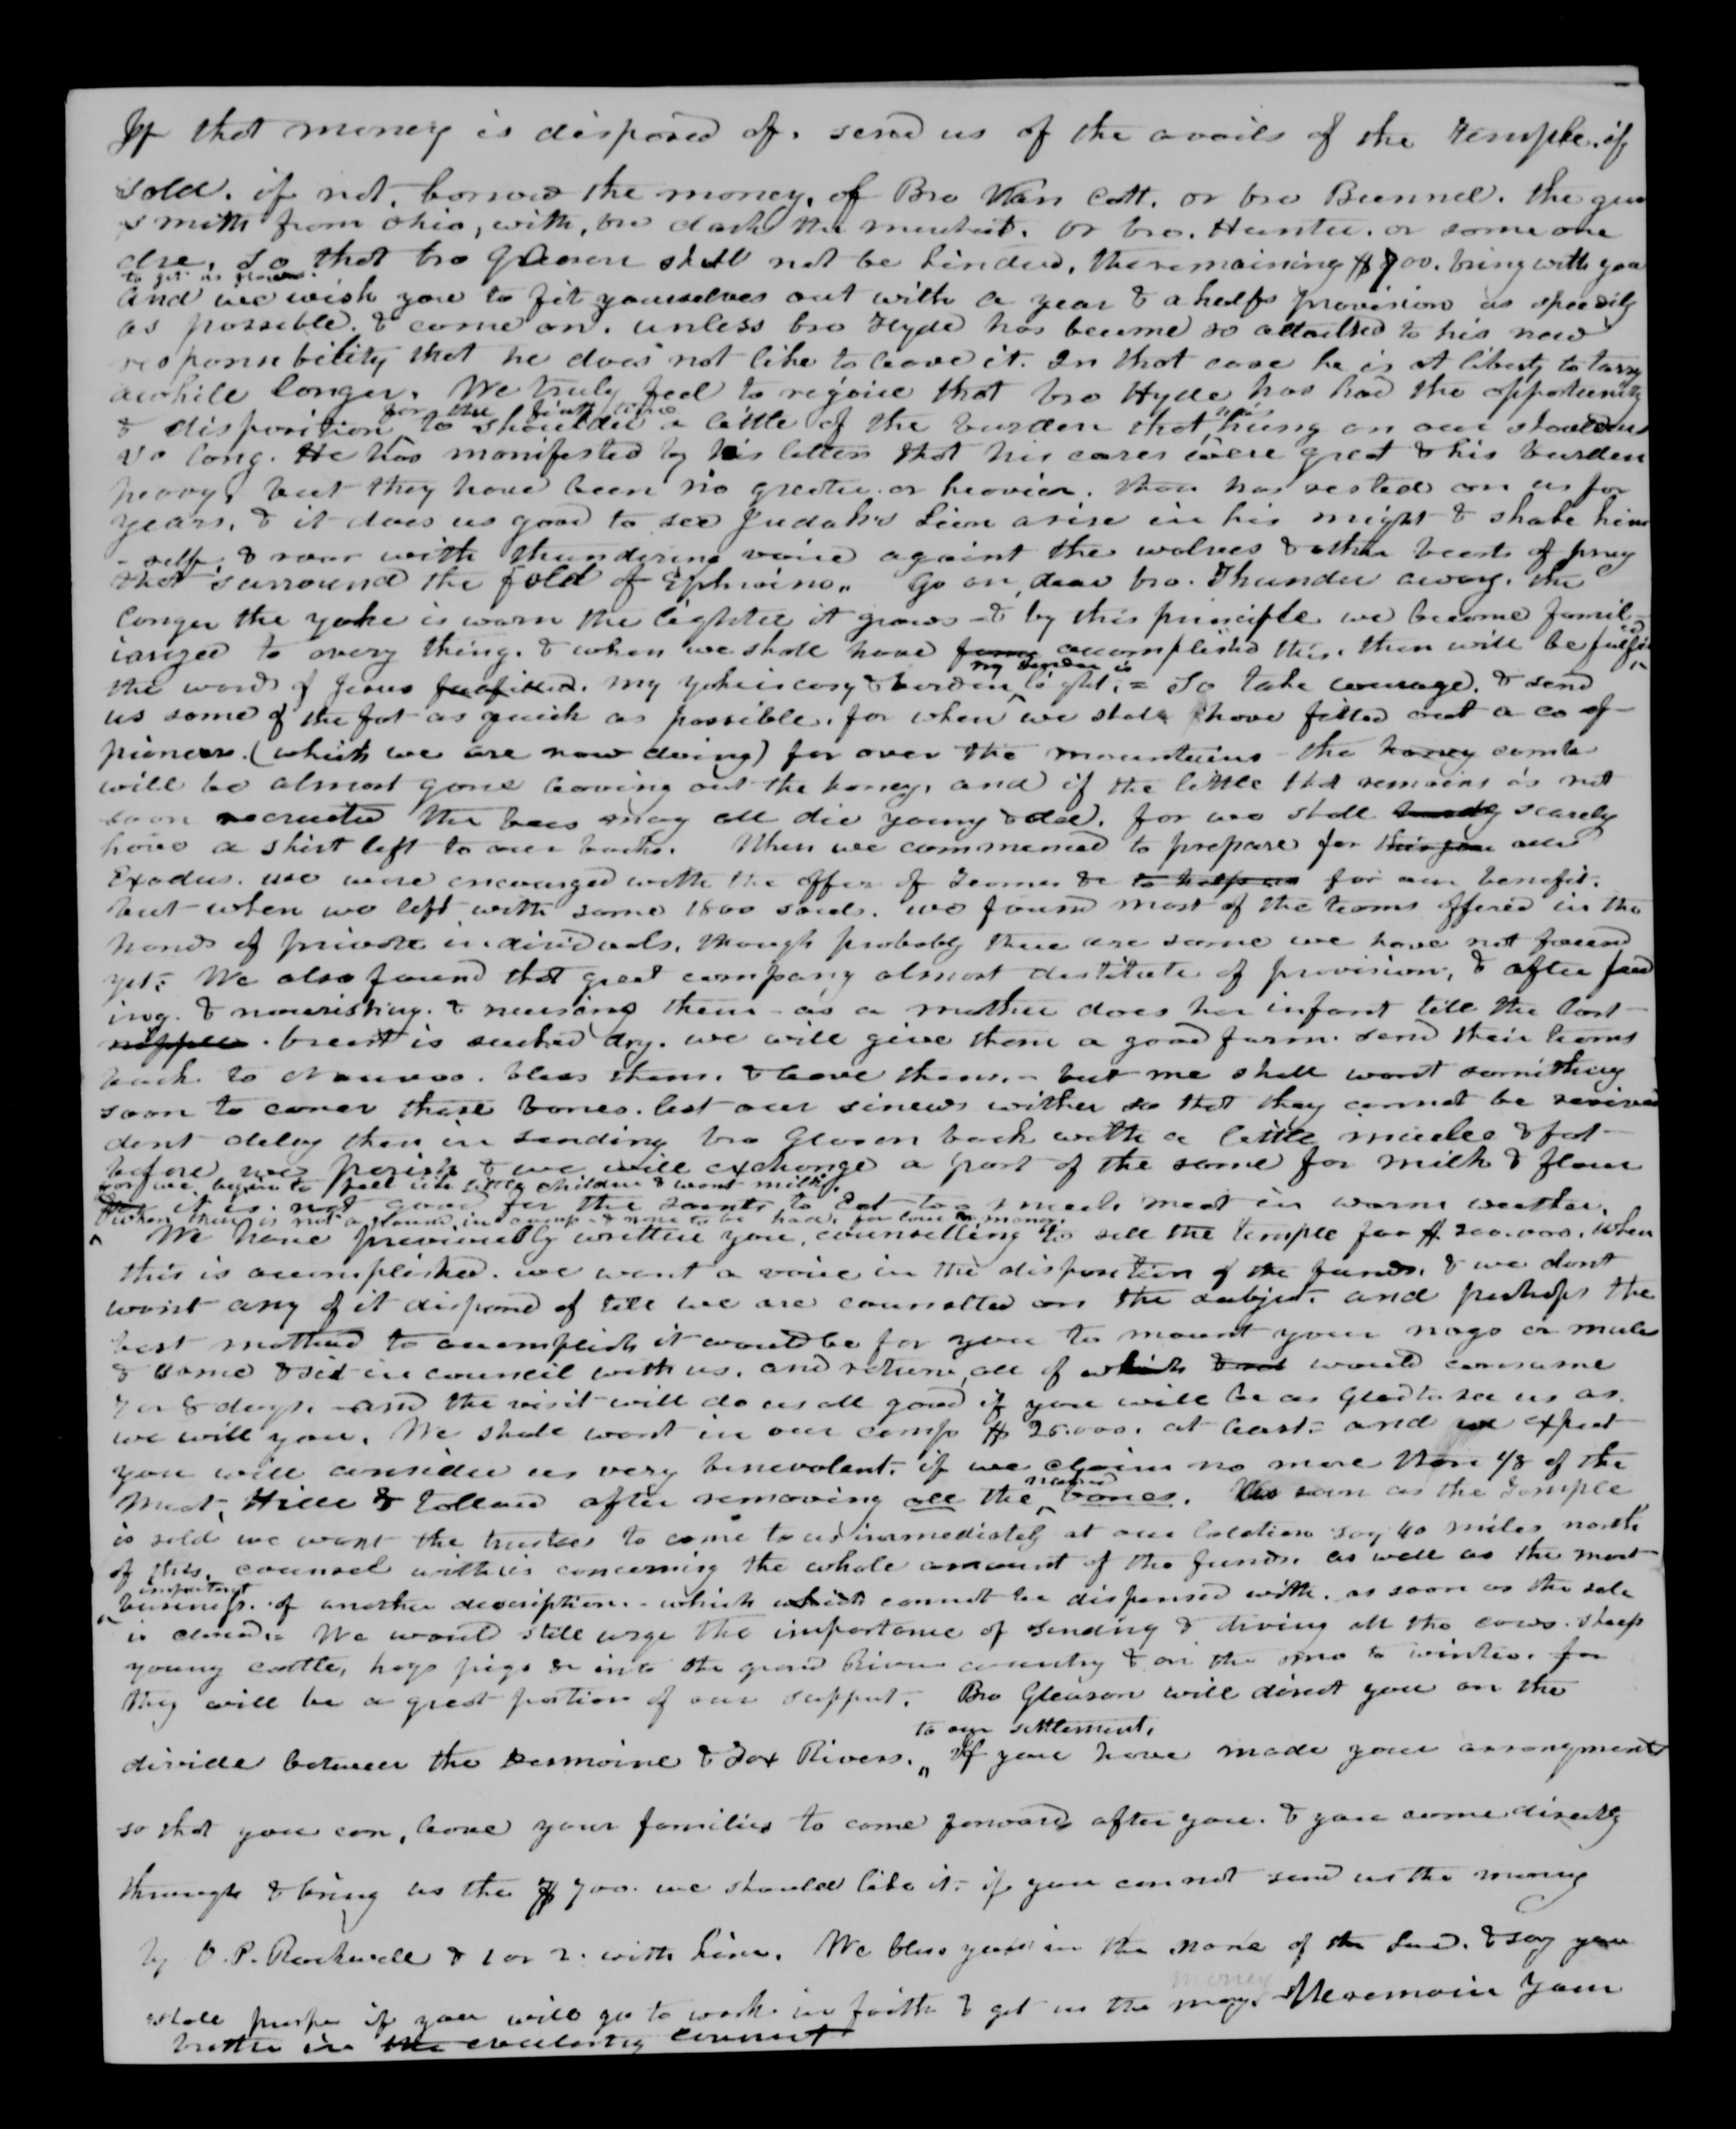 If that money is disposed of. send us of the avails of the Temple. if
sold. if not. borrow the money, of Bro Van Cott. or bro Bunnel. the gun
smith from Ohio, with, bro the merchant. or bro. Hunter. or some one
else, so that bro Gleason shall not be hindered, the remaining $700. bring with you
to get us flour.
and we wish you to fit yourselves out with a year & a halfs provision as speedily
as possible. & come on. unless bro Hyde has become so attached to his new
responsibility that he does not like to leave it. In that case he is at liberty to tarry
awhile longer. We truly feel to rejoice that bro Hyde has had the opportunity
for the first time has
& disposition to shoulder a little of the burden that hung on our shoulders
so long. He has manifested by his letters that his cares were great & his burden
heavy, but they have been no greater or heavier. than has rested on us for
years, & it does us good to see Judah's Lion arise in his might & shake him
-self, & roar with thundering voice against the wolves & other beasts of prey
that surround the fold of Ephraim. Go on, dear bro. Thunder away. the
longer the yoke is worn the lighter it grows - & by this principle we become famil-
iarized to every thing. & when we shall have accomplished this. then will be fulfilled
my burden is
the words of Jesus fulfilled. my yoke is easy & burden light. = So take courage. & send
us some of the fat as quick as possible. for when we shall have fitted out a co of
pioneers. (which we are now doing) for over the mountains - the honey comb
will be almost gone leaving out the honey, and if the little that remains is not
soon recruited the bees may all die young & old. for we shall scarcely
have a shirt left to our backs. When we commenced to prepare for our
Exodus. we were encouraged with the offer of Teams &c to help us for our benefit.
but when we left with some 1800 souls. we found most of the teams offered in the
hands of private individuals, though probably there are some we have not found
yet. We also found that great company almost destitute of provision, & after feed
ing. & nourishing. & nursing them - as a mother does her infant till the last
nipple. breast is sucked dry. we will give them a good farm. send their teams
back to Nauvoo. bless them. & leave them. - but we shall want something
soon to cover these bones. lest our sinews wither so that they cannot be revived
dont delay then in sending bro Gleason back with a little muscle & fat
before we perish & we will exchange a part of the same for milk & flour
for we begin to feel like little children & want milk.
it is not good for the saints to Eat too much meat in warm weather.
when there is not a pound in camp - & none to be had, for love or money.
We have previously written you, counselling to sell the temple for $ 200.000. when
this is accomplished. we want a voice in the disposition of the funds. & we dont
want any of it disposed of till we are counselled on the subject. and perhaps the
best method to accomplish it would be for you to mount your nags or mules
& come & sit in council with us. and return, all of which would consume
7 or 8 days. - and the visit will do us all good if you will be as glad to see us as.
we will you. We shall want in our camp $ 25.000. at least. and we expect
you will consider us very benevolent. if we claim no more than 1/8 of the
naked
Meat, Hide & Tallow after removing all the bones. As soon as the Temple
is sold we want the trustees to come to us immediately at our location say 40 miles north
of this. counsel with us concerning the whole amount of the funds. as well as the most
important
business. of another description. - which which cannot be dispensed with. as soon as the sale
is closed. = We would still urge the importance of sending & driving all the cows. sheep
young cattle, hogs pigs &c into the grand River country & on the to winter. for
they will be a great portion of our support. Bro Gleason will direct you on the
to our settlement.
divide between the Desmoine & Fox Rivers. If you have made your arrangments
so that you can, leave your families to come forward after you. & you come directly
through & bring us the $ 700. we should like it. if you can not send us the money
by O. P. Rockwell & 1 or 2. with him. We bless you in the name of the Lord. & say you
money
shall prosper if you will go to work in faith & get us the may. We remain your
brother in the everlasting covenant